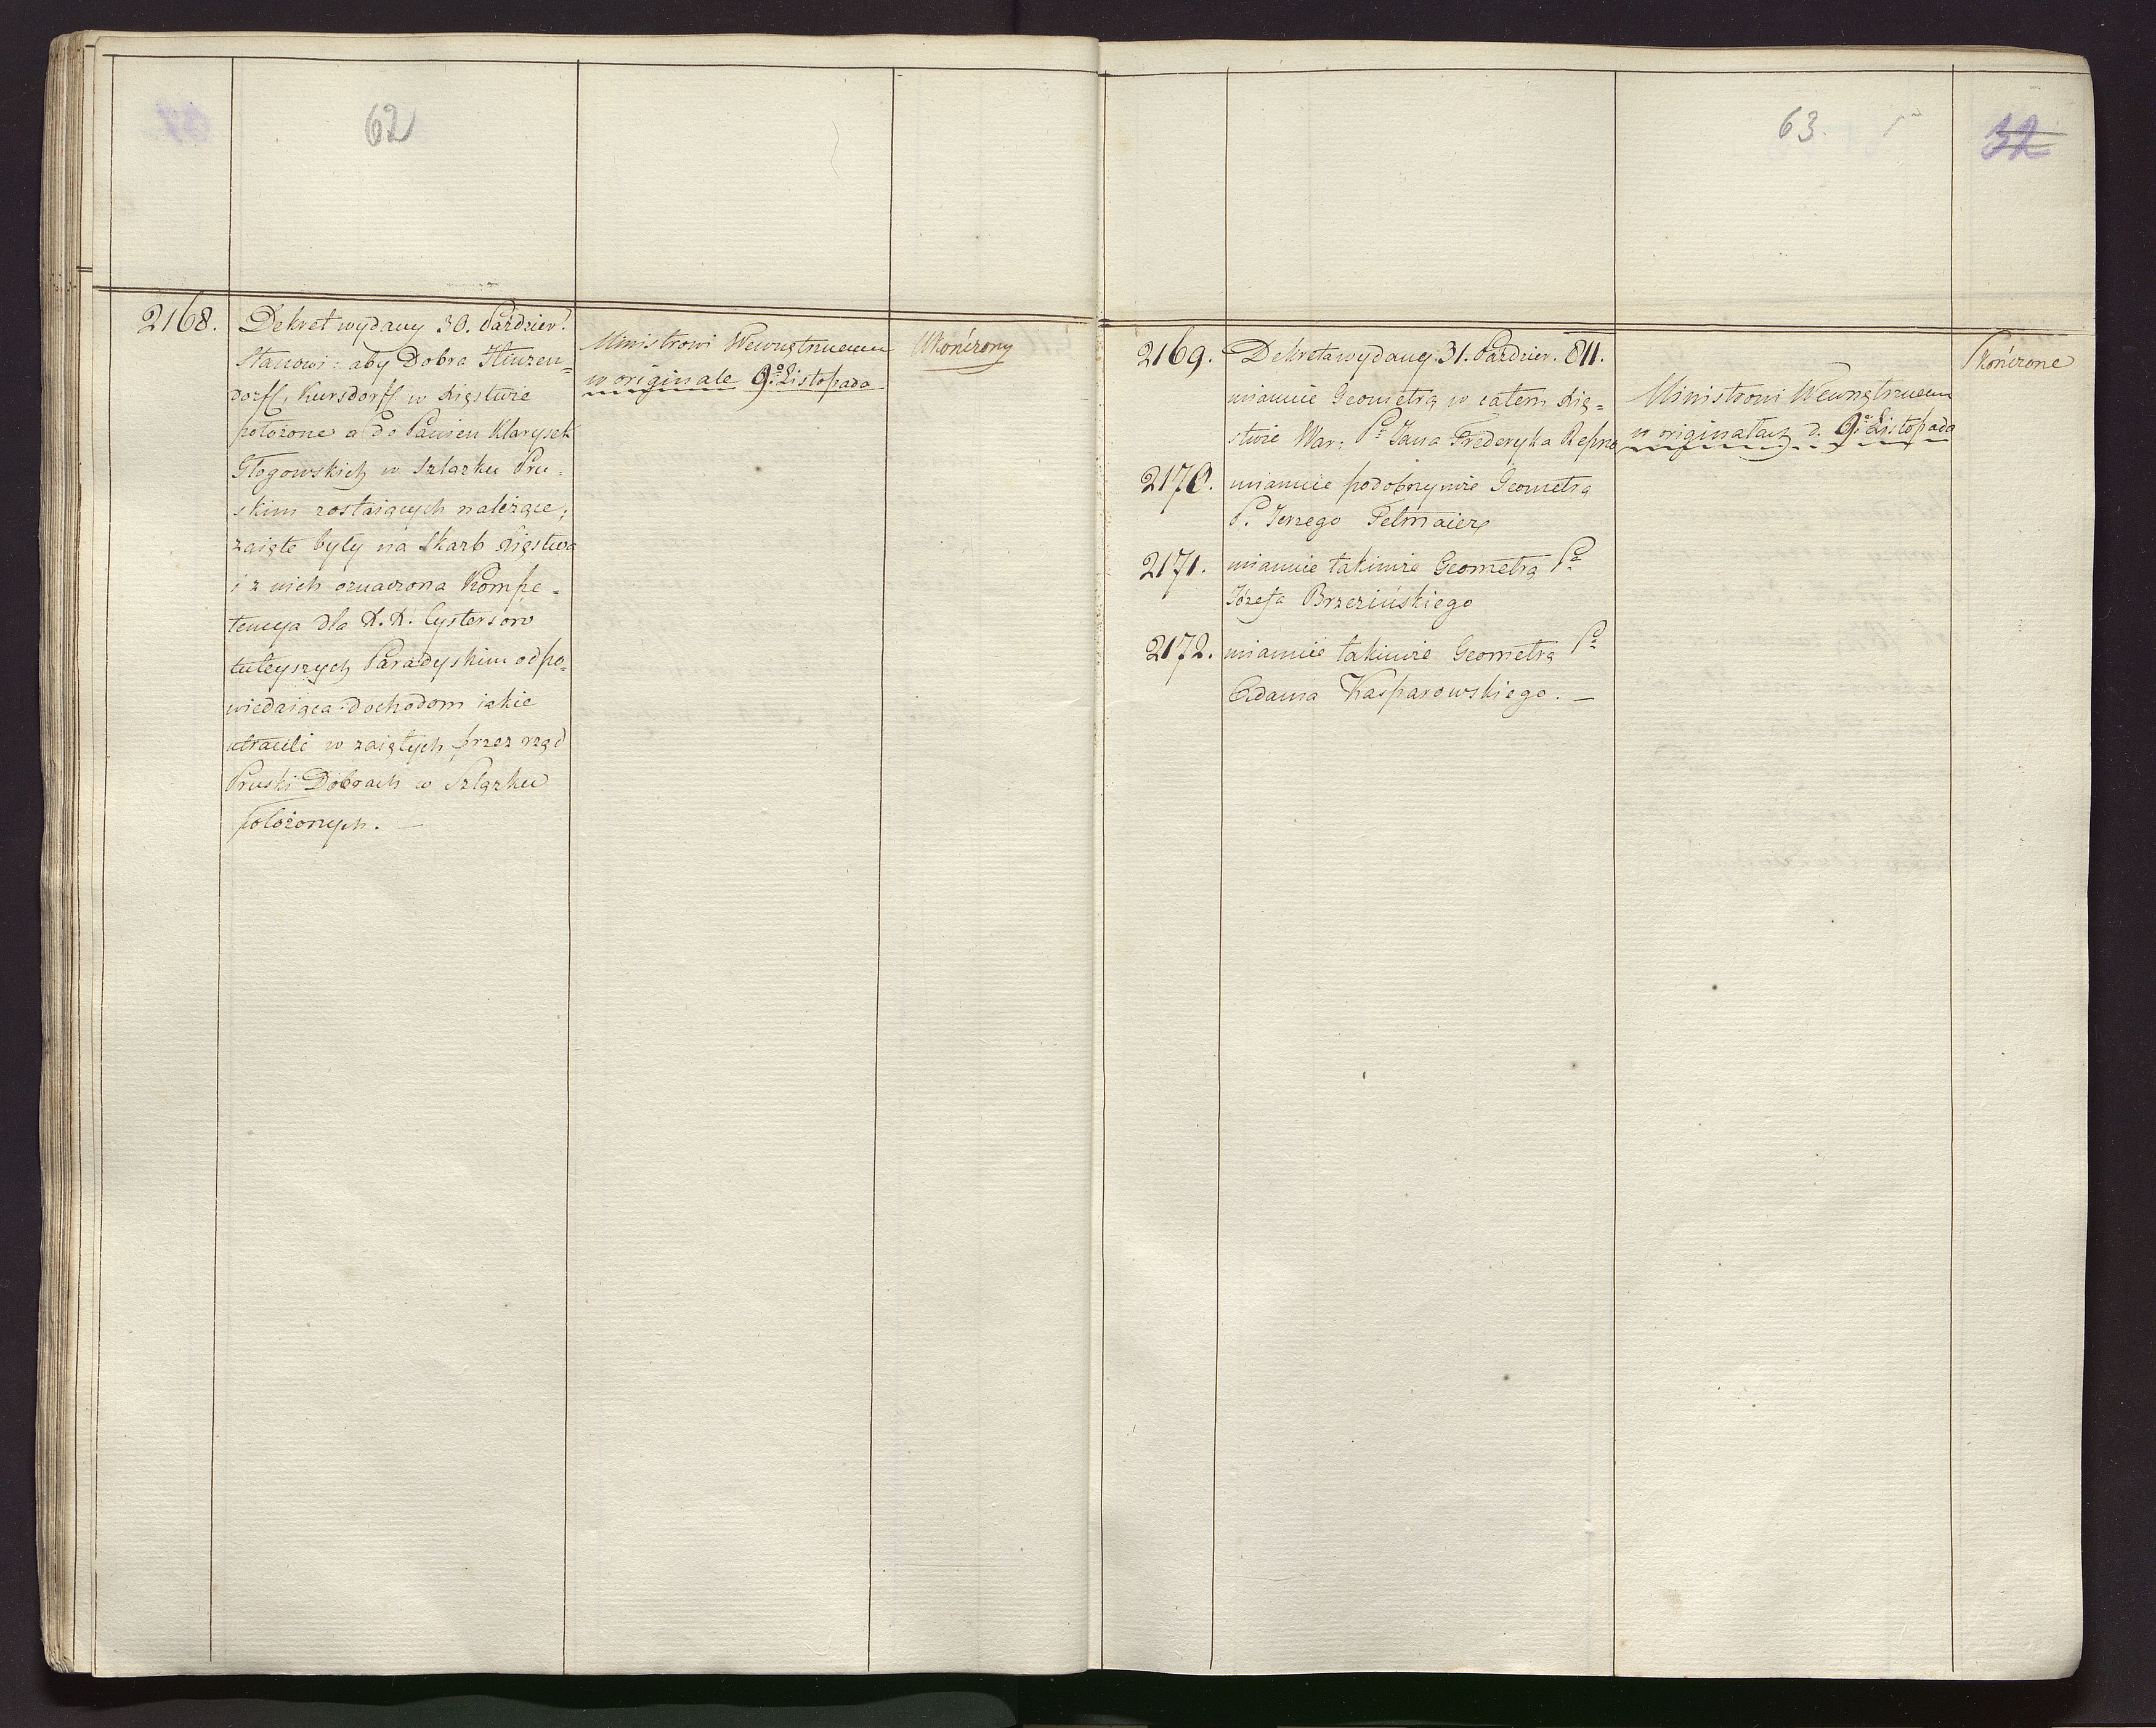 62
2168.
Dekret wydany 30. Paździer.
Stanowi: aby Dobra Hinzen=
dorff, Kursdorff w Xięstwie
położone a do Panien Klarysek
Głogowskich w Szląsku Pru-
skim zostaiących należące;
zaięte były na Skarb Xięstwa
i z nich oznaczona Kompe-
tencya dla X.X. Cystersów
tuteyszych Paradyskim odpo-
wiedaiąca dochodom iakie
utracili w zaiętych przez rząd
Pruski Dobrach w Szląsku
położonych. —
Ministrowi Wewnętrznemu
w originale 9o Listopada
Ukończony
63.
32
2169.
Dekreta wydany 31. Paździer. 811.
mianuie Geometrą w całem Xię=
stwie War: Pa Jana Frederyka
2170.
mianuie podobnymże Geometrą
P. Jerzego Felmaiera
2171.
mianuie takimże Geometrą Pa
Józefa Brzezińskiego
2172.
mianuie takimże Geometrą Pa
Adama Kasparowskiego. —
Ministrowi Wewnętrznemu
w originałach d. 9o Listopada
Skończone